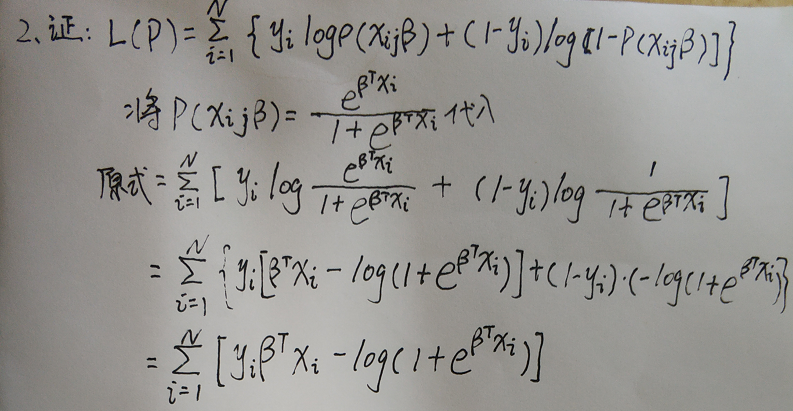 2、证: L(P) = ∑_{i=1}^{N} { y_i log P(x_i j β) + (1-y_i) log [1-P(x_i j β)] }
:将 P(x_i j β) = \frac{e^{β^T x_i}}{1+e^{β^T x_i}} 代入
原式 = ∑_{i=1}^{N} [ y_i log \frac{e^{β^T x_i}}{1+e^{β^T x_i}} + (1-y_i) log \frac{1}{1+e^{β^T x_i}} ]
= ∑_{i=1}^{N} { y_i [β^T x_i - log(1+e^{β^T x_i})] + (1-y_i)·(-log(1+e^{β^T x_i}) }
= ∑_{i=1}^{N} [ y_i β^T x_i - log(1+e^{β^T x_i}) ]